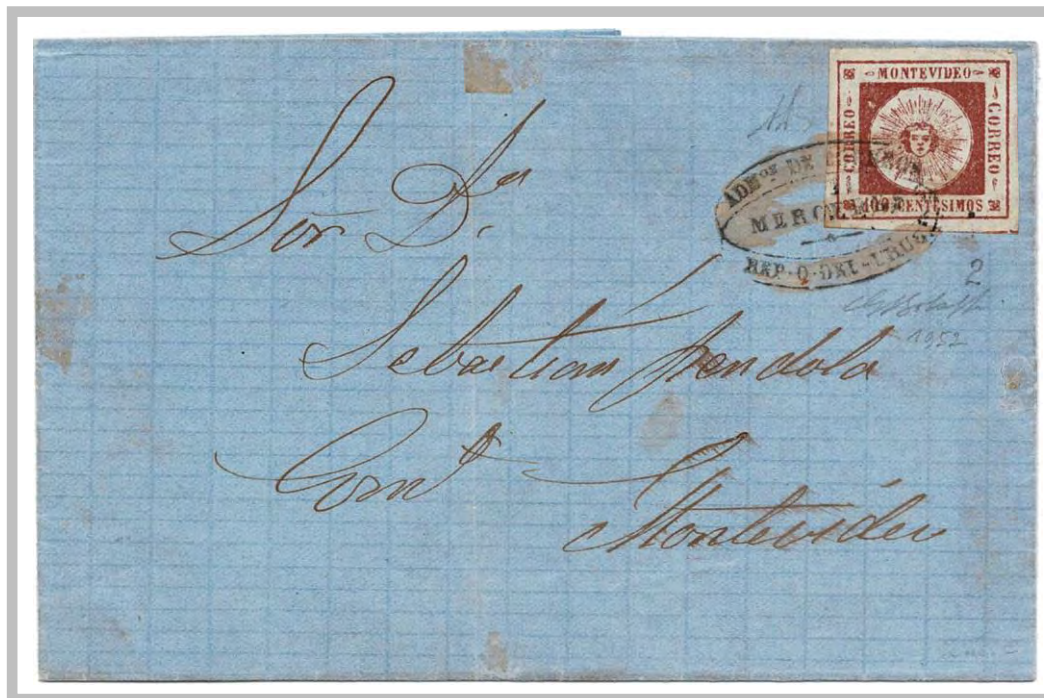 MONTEVIDEO
CORREO
CORREO
100 CENTESIMOS
ADMon DE
MERCEDES
REP·O·DEL·URUG
2
1952
Sor. Dn
Sebastian Pendola
Montevideo